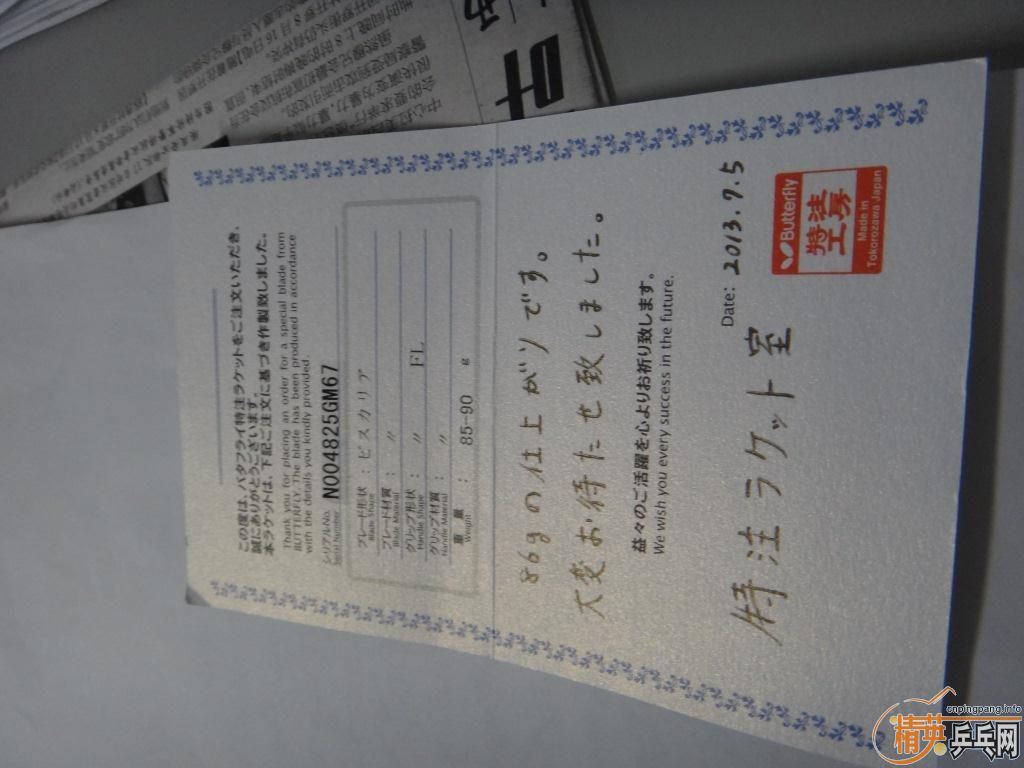 この度は、バタフライ特注ラケットをご注文いただき、
誠にありがとうございます。
本ラケットは、下記ご注文に基づき作製致しました。
Thank you for placing an order for a special blade from
BUTTERFLY. The blade has been produced in accordance
with the details you kindly provided.
シリアルNo.
Serial number
NO04825GM67
ブレード形状 : ビスカリア
Blade Shape
ブレード材質 : 〃
Blade Material
グリップ形状 : 〃 FL
Handle Shape
グリップ材質 : 〃
Handle Material
重量 : 85-90 g
Weight
86gの仕上がりです。
大変お待たせ致しました。
益々のご活躍を心よりお祈り致します。
We wish you every success in the future.
Date: 2013.7.5
特注ラケット室
Butterfly
特注
工房
Made in
Tokorozawa Japan
cnpingpang.info
精英乒乓网